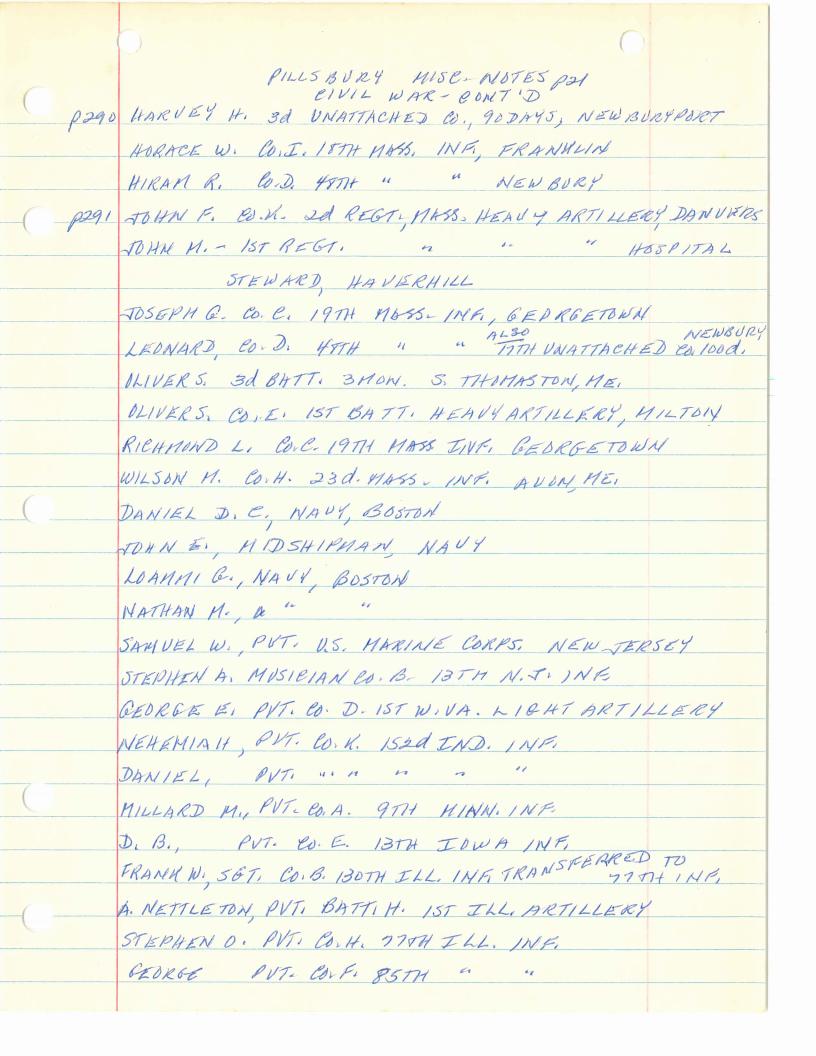 PILLSBURY MISC-NOTES p21
CIVIL WAR-CONT'D
p290 HARVEY H. 3d UNATTACHED CO., 90 DAYS, NEWBURYPORT
HORACE W. CO.I. 18TH MASS. INF., FRANKLIN
HIRAM R. CO.D. 48TH " " NEWBURY
p291 JOHN F. CO.K. 2d REGT., MASS. HEAVY ARTILLERY, DANVERS
JOHN M. - 1ST REGT. " " " HOSPITAL
STEWARD, HAVERHILL
JOSEPH G. CO.C. 19TH MASS- INF., GEORGETOWN
ALSO NEWBURY
LEONARD, CO.D. 48TH " " 17TH UNATTACHED CO. 100d.
OLIVER S. 3d BATT. 3 MON. S. THOMASTON, ME.
OLIVER S. CO.E. 1ST BATT. HEAVY ARTILLERY, MILTON
RICHMOND L. CO.C. 19TH MASS INF. GEORGETOWN
WILSON M. CO.H. 23d. MASS. INF. AVON, ME.
DANIEL D. C., NAVY, BOSTON
JOHN E., MIDSHIPMAN, NAVY
LOAMMI G., NAVY, BOSTON
NATHAN M., " "
SAMUEL W., PVT. U.S. MARINE CORPS. NEW JERSEY
STEPHEN A. MUSICIAN CO. B. 13TH N.J. INF.
GEORGE E. PVT. CO. D. 1ST W.VA. LIGHT ARTILLERY
NEHEMIAH, PVT. CO.K. 152d IND. INF.
DANIEL, PVT. " " " " "
MILLARD M., PVT. CO.A. 9TH MINN. INF.
D. B., PVT. CO. E. 13TH IOWA INF.
FRANK W., SGT. CO.B. 130TH ILL. INF. TRANSFERRED TO
77TH INF.
A. NETTLETON, PVT. BATT. H. 1ST ILL. ARTILLERY
STEPHEN O. PVT. CO.H. 77TH ILL. INF.
GEORGE PVT. CO.F. 85TH " "